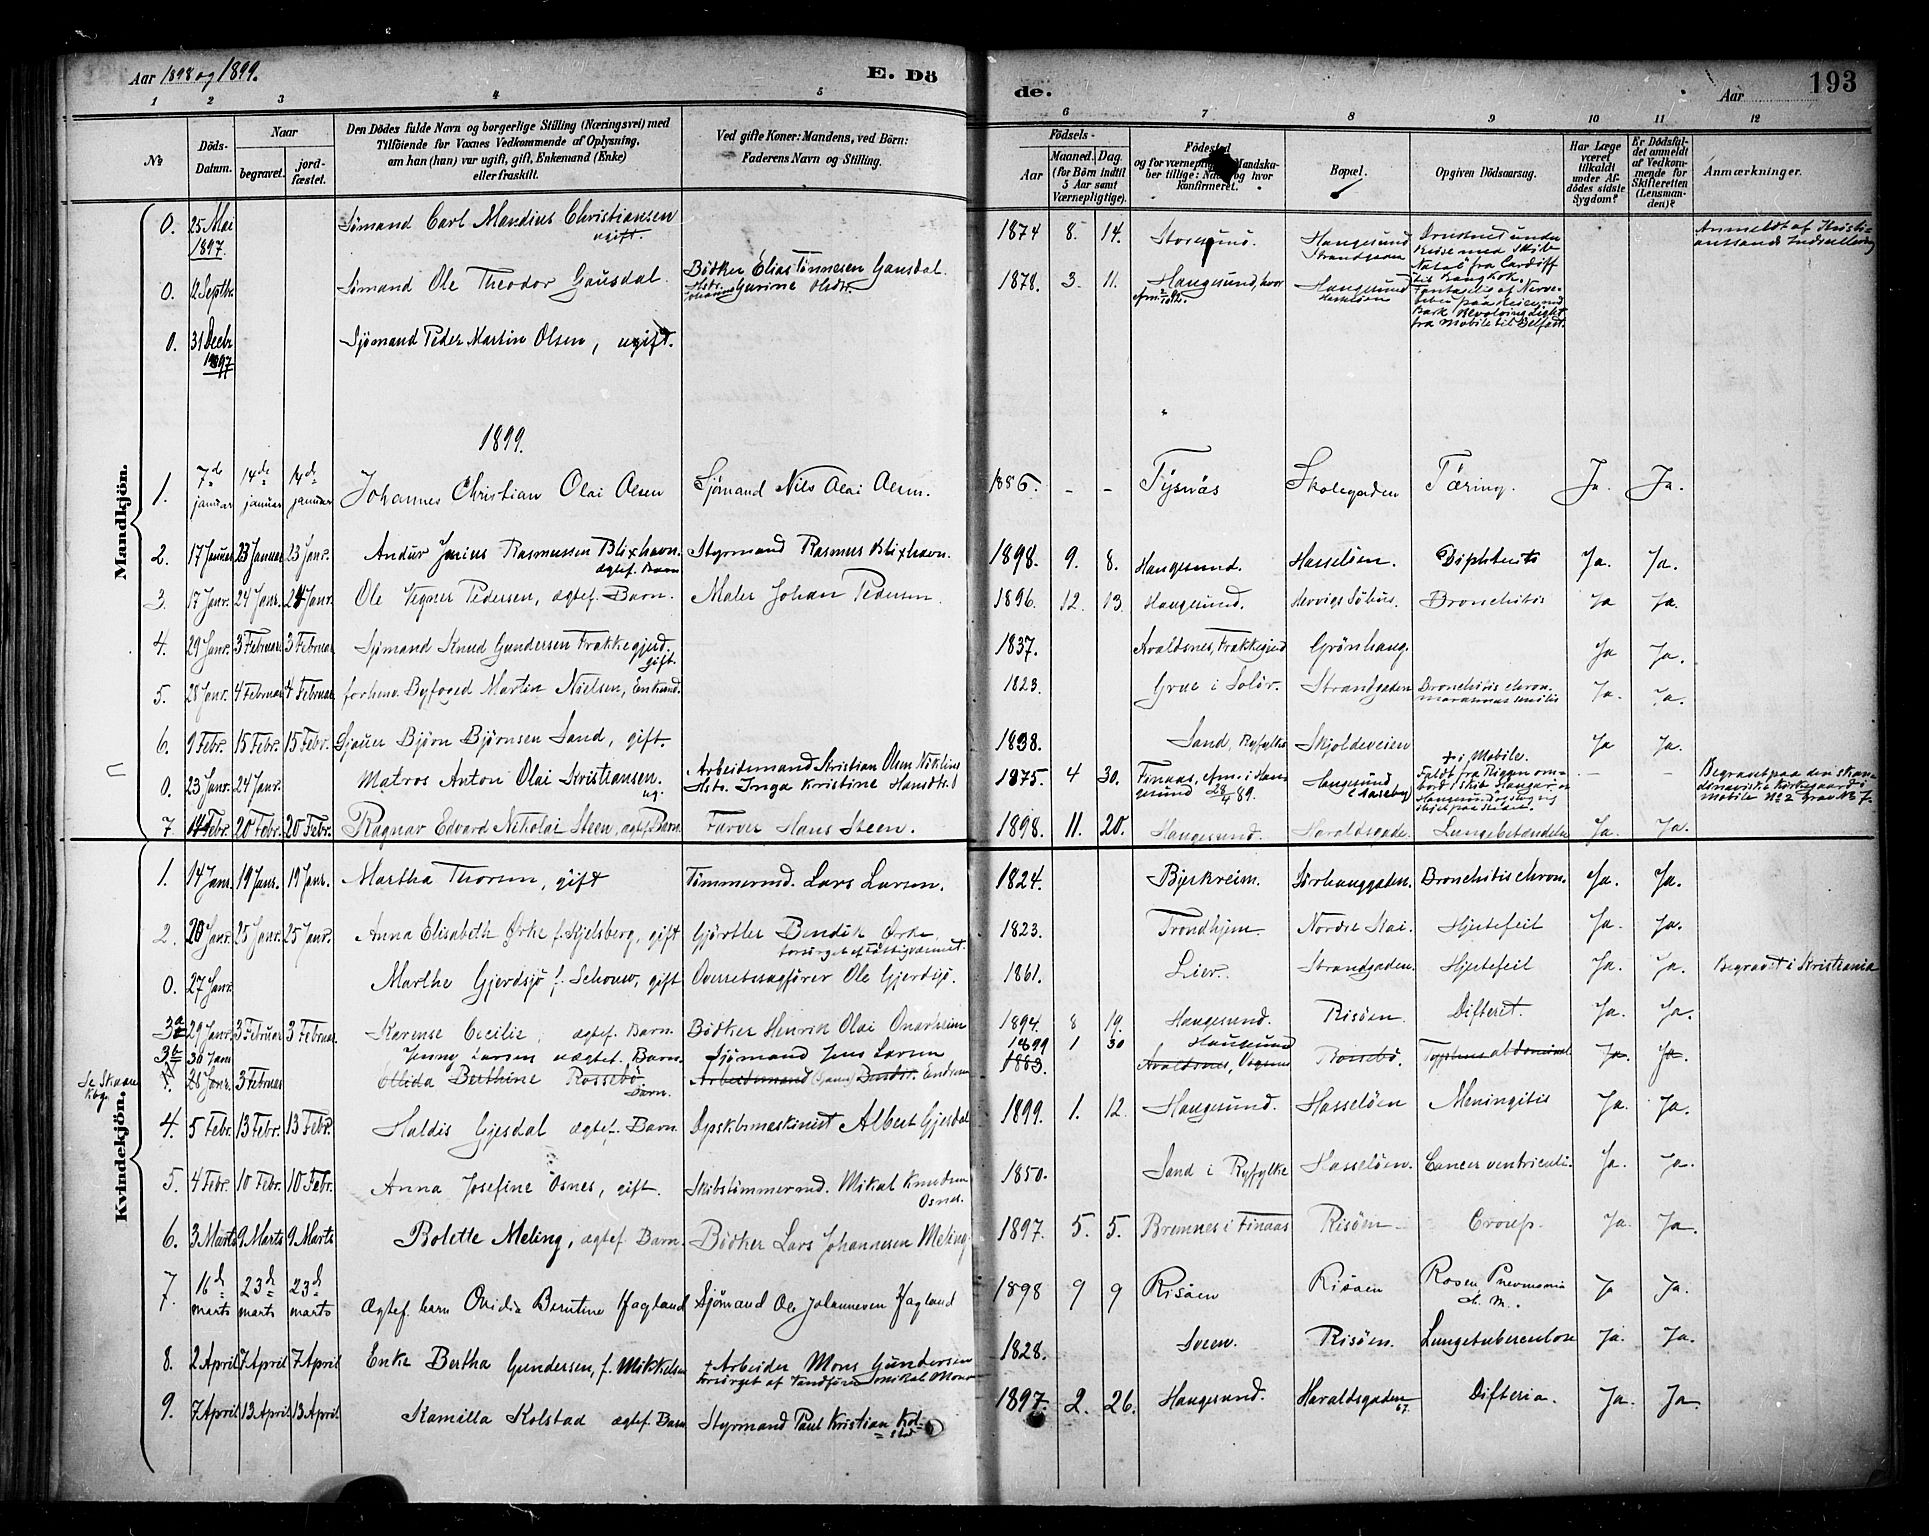 Aar 1898 og 1899.
E. Dö
de.
Aar
193
1 2 3 4 5 6 7 8 9 10 11 12
No
Döds-
Datum.
Naar
begravet.
jord-
fæstet.
Den Dödes fulde Navn og borgerlige Stilling (Næringsvei) med
Tilföiende for Voxnes Vedkommende af Oplysning,
om han (hun) var ugift, gift, Enkemand (Enke)
eller fraskilt.
Ved gifte Koner: Mandens, ved Börn:
Faderens Navn og Stilling.
Födsels-
Aar
Maaned. Dag.
(for Börn indtil
5 Aar samt
Værnepligtige).
Födested
og for værnepligtige Mandska-
ber tillige: Naar og hvor
konfirmeret.
Bopæl.
Opgiven Dödsaarsag.
Har Læge
været
tilkaldt
under Af-
dödes sidste
Sygdom?
Er Dödsfal-
det anmeldt
af Vedkom-
mende for
Skifteretten
(Lensman-
den)?
Anmærkninger.
Mandkjön.
0. 25 Mai 1897. Sømand Carl Mandius Christiansen ugift. 1874 8. 14. Haugesund Strandgaden
Druknet under
Reise med Skib
Natal fra Cardiff
til Bangkok.
Anmeldt af Kristi-
ansands Indrullering
0. 12 Septbr. Sømand Ole Theodor Gausdal. Bødker Elias Tønnesen Gausdal. 1878. 3. 11. Haugesund, hvor Haugesund
paa Reise med
Bark Revolving Light
fra Mobile til Belfast.
0. 31 Decbr 1897 Sjømand Peder Martin Olsen, ugift.
1899.
1. 7de januar 14de januar 14de januar Johannes Christian Olai Olsen Sjømand Nils Olai Olsen. 1886. - - Tysnæs Skolegaden Tæring. Ja. Ja.
2. 17 Januar 23 Januar 23 Janr. Andur Junius Rasmussen Blixhavn. ægtef. Barn Styrmand Rasmus Blixhavn. 1898. 9. 8. Haugesund. Hasseløen. Diphterits Ja. Ja.
3. 17 Janr. 24 Janr. 24 Janr. Ole Vegner Pedersen, ægtef. Barn. Maler Johan Pedersen. 1896. 12. 13. Haugesund. Hervigs Søhus. Bronchitis Ja Ja.
4. 29 Janr. 3 Februar 3 Februar Sjømand Knud Gundersen Frakkegjerd. gift. 1837. Avaldsnes, Frakkegjerd Grønhaug. Ja Ja.
5. 28 Janr. 4 Februar 4 Februar forhenv. Byfoged Martin Nielsen, Enkmd. 1823. Grue i Solør. Strandgaden Bronchitis chron. marasmus senilis Ja. Ja.
6. 9 Febr. 15 Febr. 15 Febr. Sjauer Bjørn Bjørnsen Sand, gift. 1838. Sand, Ryfylke Skjoldeveien Ja Ja.
0. 23 Janr. 24 Janr. Matros Anton Olai Kristiansen. ug. Arbeidsmand Kristian Olsen Hstr. Inga Kristine Hansdtr. 1875. 4 30. Finaas, i Haugesund 28/4 89. Haugesund
+ i Mobile.
Faldt fra Riggen om-
bord i skib
Begravet paa den skan-
dinaviske Kirkegaard i
Mobile No 2 Grav No 7.
7. 14 Febr. 20 Febr. 20 Febr. Ragnar Edvard Nikolai Steen, ægtef. Barn. Farver Hans Steen. 1898. 11. 20. Haugesund. Haraldsgade. Lungebetændelse Ja. Ja.
Kvindekjön.
1. 14 Janr. 19 Janr. 19 Janr. Martha Thorsen, gift Tømmermd. Lars Larsen. 1824. Bjerkreim. Sørhauggaden. Bronchitis chron. Ja. Ja.
2. 20 Janr. 25 Janr. 25 Janr. Anna Elisabeth Ørke f. Kjelsberg, gift Gjørtler Bendik Ørke, forsørget af Fattigvæsenet. 1823. Trondhjem. Nordre Kai. Hjertefeil Ja. Ja.
0. 27 Janr. Marthe Gjerdsjø f. Schouw, gift Overretssagfører Ole Gjerdsjø. 1861. Lier. Strandgaden. Hjertefeil Ja. Ja. Begravet i Kristiania
3a 29 Janr. 3 Februar 3 Februar. Karense Cecilie, ægtef. Barn. Bødker Henrik Olai Onarheim 1894. 8 19. Haugesund. Risøen. Difteret. Ja. Ja.
3b 30 Janr. Jenny Larsen uægtef. Barn. Sjømand Jens Larsen 1899 1 30 Haugesund
28 Janr. 3 Februar Ellida Berthine Rossebø. Barn. Arbeidsmand Endresen 1883. Avaldsnes, Rossebø. Typhus abdominal. Ja. Ja.
4. 5 Febr. 13 Febr. 13 Febr. Haldis Gjesdal ægtef. Barn. Dpskibsmaskinist Albert Gjesdal 1899. 1. 12. Haugesund. Hasseløen Meningitis Ja. Ja.
5. 4 Febr. 10 Febr. 10 Febr. Anna Josefine Osnes, gift. Skibstømmermd. Mikal Knudsen Osnes. 1850. Sand i Ryfylke Hasseløen. Cancer ventriculi. Ja. Ja.
6. 3 Marts 9 Marts 9 Marts Bolette Meling, ægtef. Barn. Bødker Lars Johannesen Meling. 1897. 5. 5. Bremnes i Finaas Risøen. Croup. Ja. Ja.
7. 16de marts 23de marts 23de marts Ægtef. barn Ovidia Berntine Hagland Sjømand Ole Johannesen Hagland 1898 9 9 Risøen Risøen Pneumonia Ja Ja.
8. 2 April 7 April 7 April Enke Bertha Gundersen, f. Mikkelsen + Arbeider Mons Gundersen Forsørget af 1828. Sveen. Risøen. Lungetuberculose Ja. Ja.
9. 7 April 13 April 13 April Kamilla Kolstad ægtef. Barn Styrmand Paul Kristian Kol-
stad 1897. 2. 26. Haugesund. Haraldsgaden 67. Difteria. Ja. Ja.